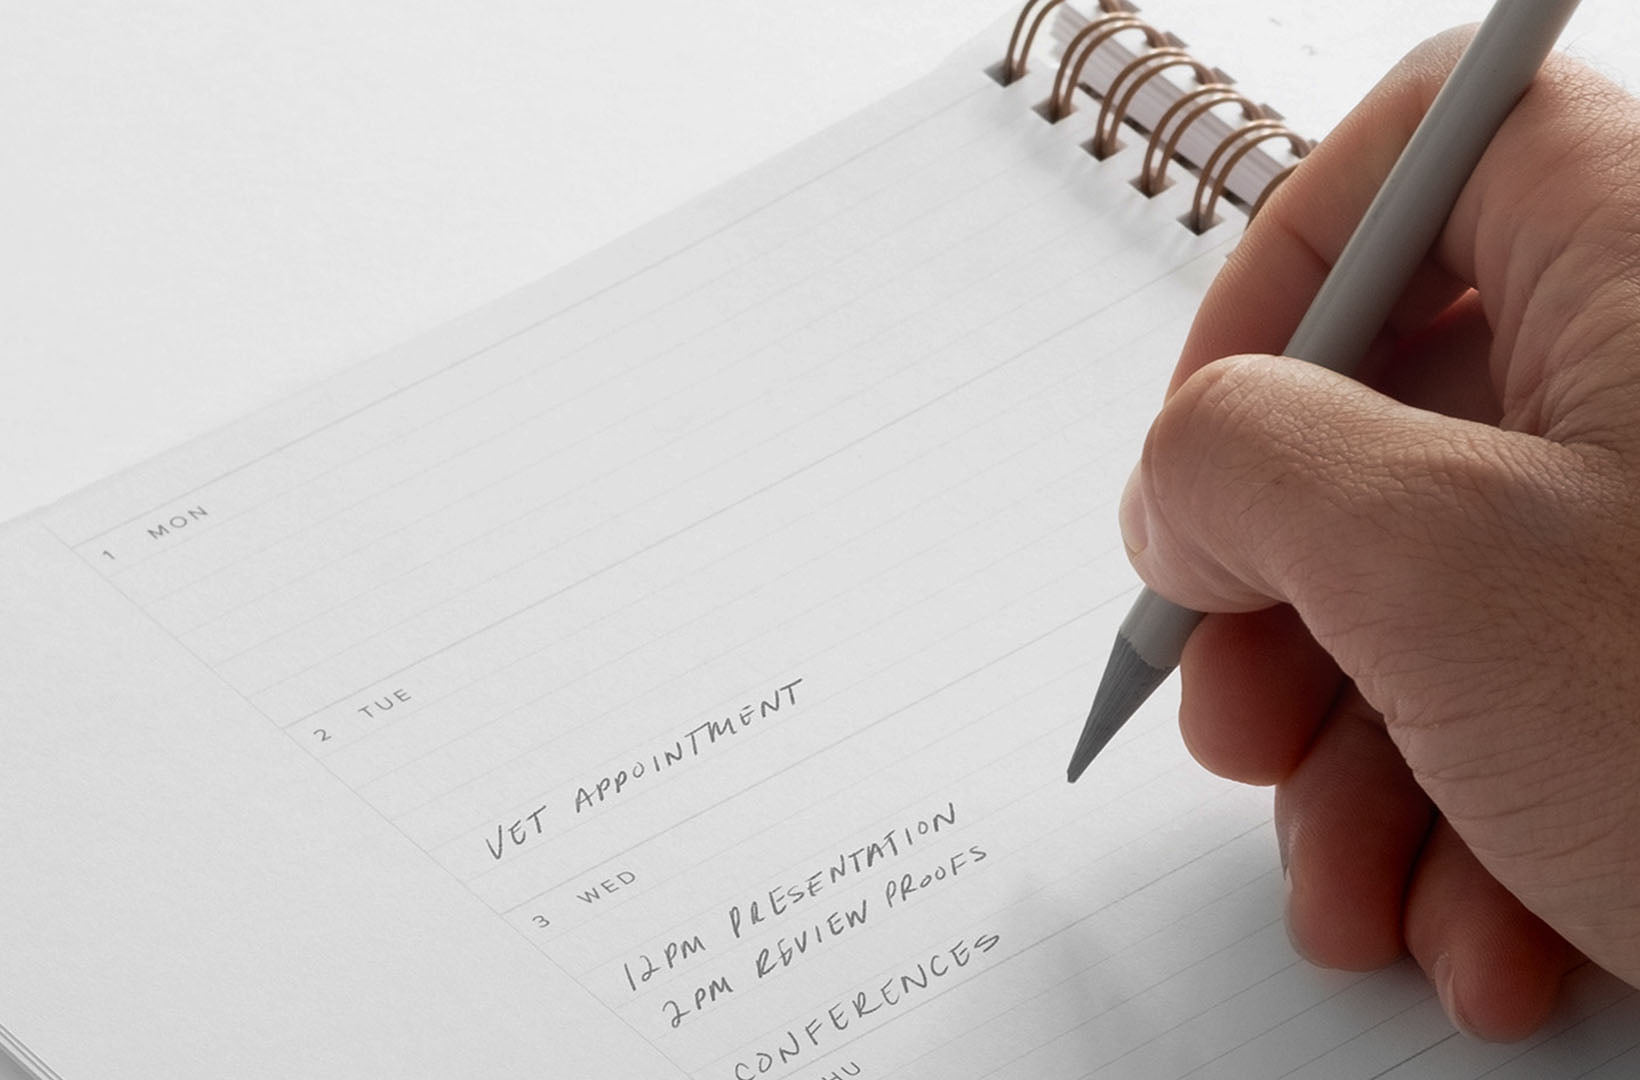 1 MON
2 TUE
VET APPOINTMENT
3 WED
12PM PRESENTATION
2PM REVIEW PROOFS
CONFERENCES